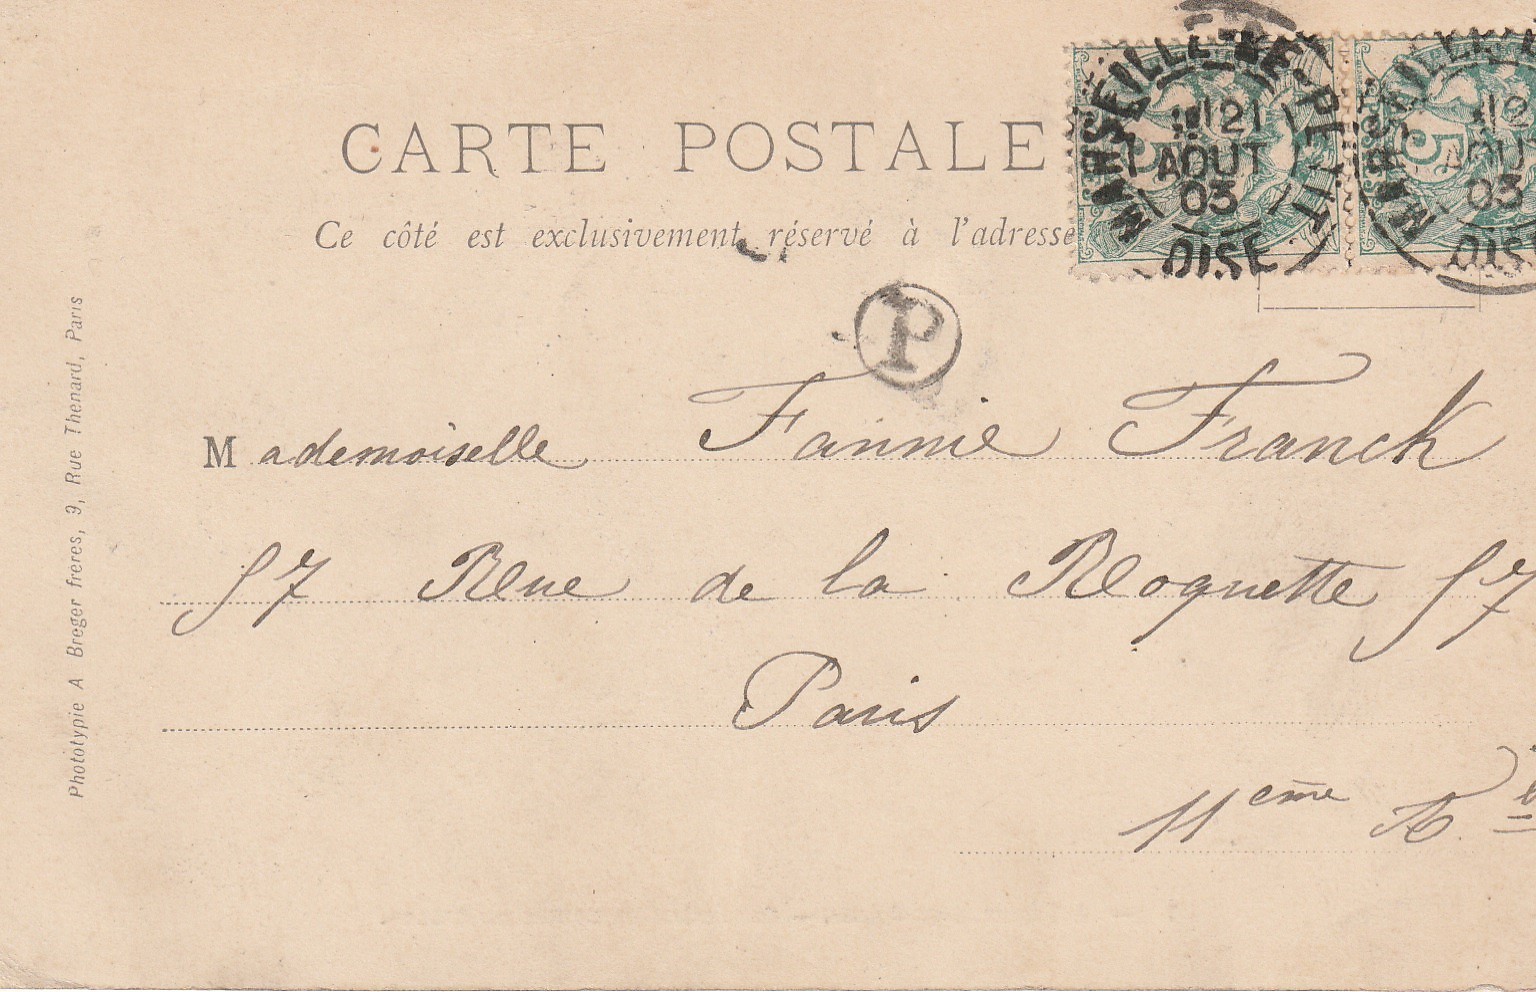 CARTE POSTALE
Ce côté est exclusivement réservé à l'adresse
MARSEILLE-LE-PETIT
21
AOUT
03
OISE
5
12
AOUT
03
P
Mademoiselle Fannie Franck
57 Rue de la Roquette 57
Paris
11eme
Phototypie A Breger freres, 9, Rue Thenard, Paris